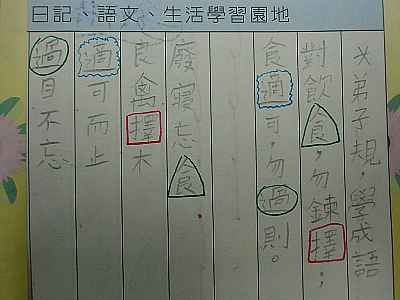 日記、語文、生活學習園地
弟子規，學成語
對飲食，勿鍊擇；
食適可，勿過則。
廢寢忘食
良禽擇木
適可而止
過目不忘